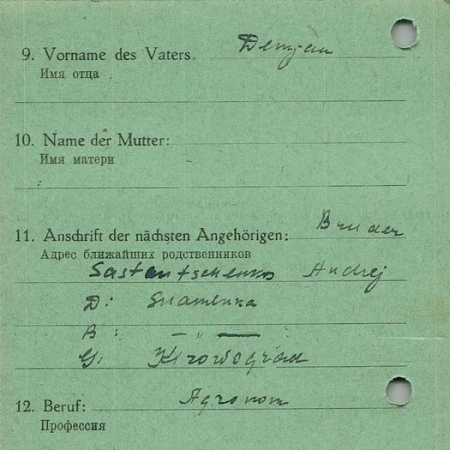 9. Vorname des Vaters. Demjan
Имя отца
10. Name der Mutter:
Имя матери
:
11. Anschrift der nächsten Angehörigen: Bruder
Адрес ближайших родственников
Andrej
D: Snamenka
B: — " —
G: Kirowograd
12. Beruf: Agronom
Профессия